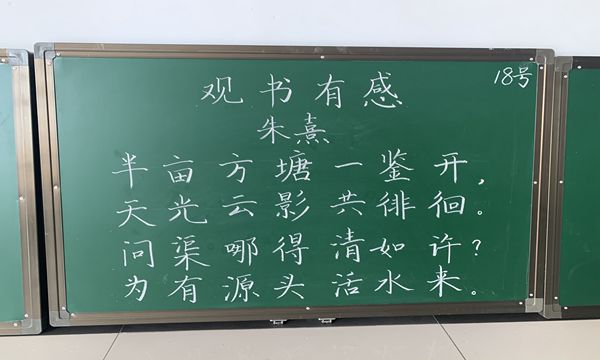 18号
观书有感
朱熹
半亩方塘一鉴开，
天光云影共徘徊。
问渠哪得清如许？
为有源头活水来。